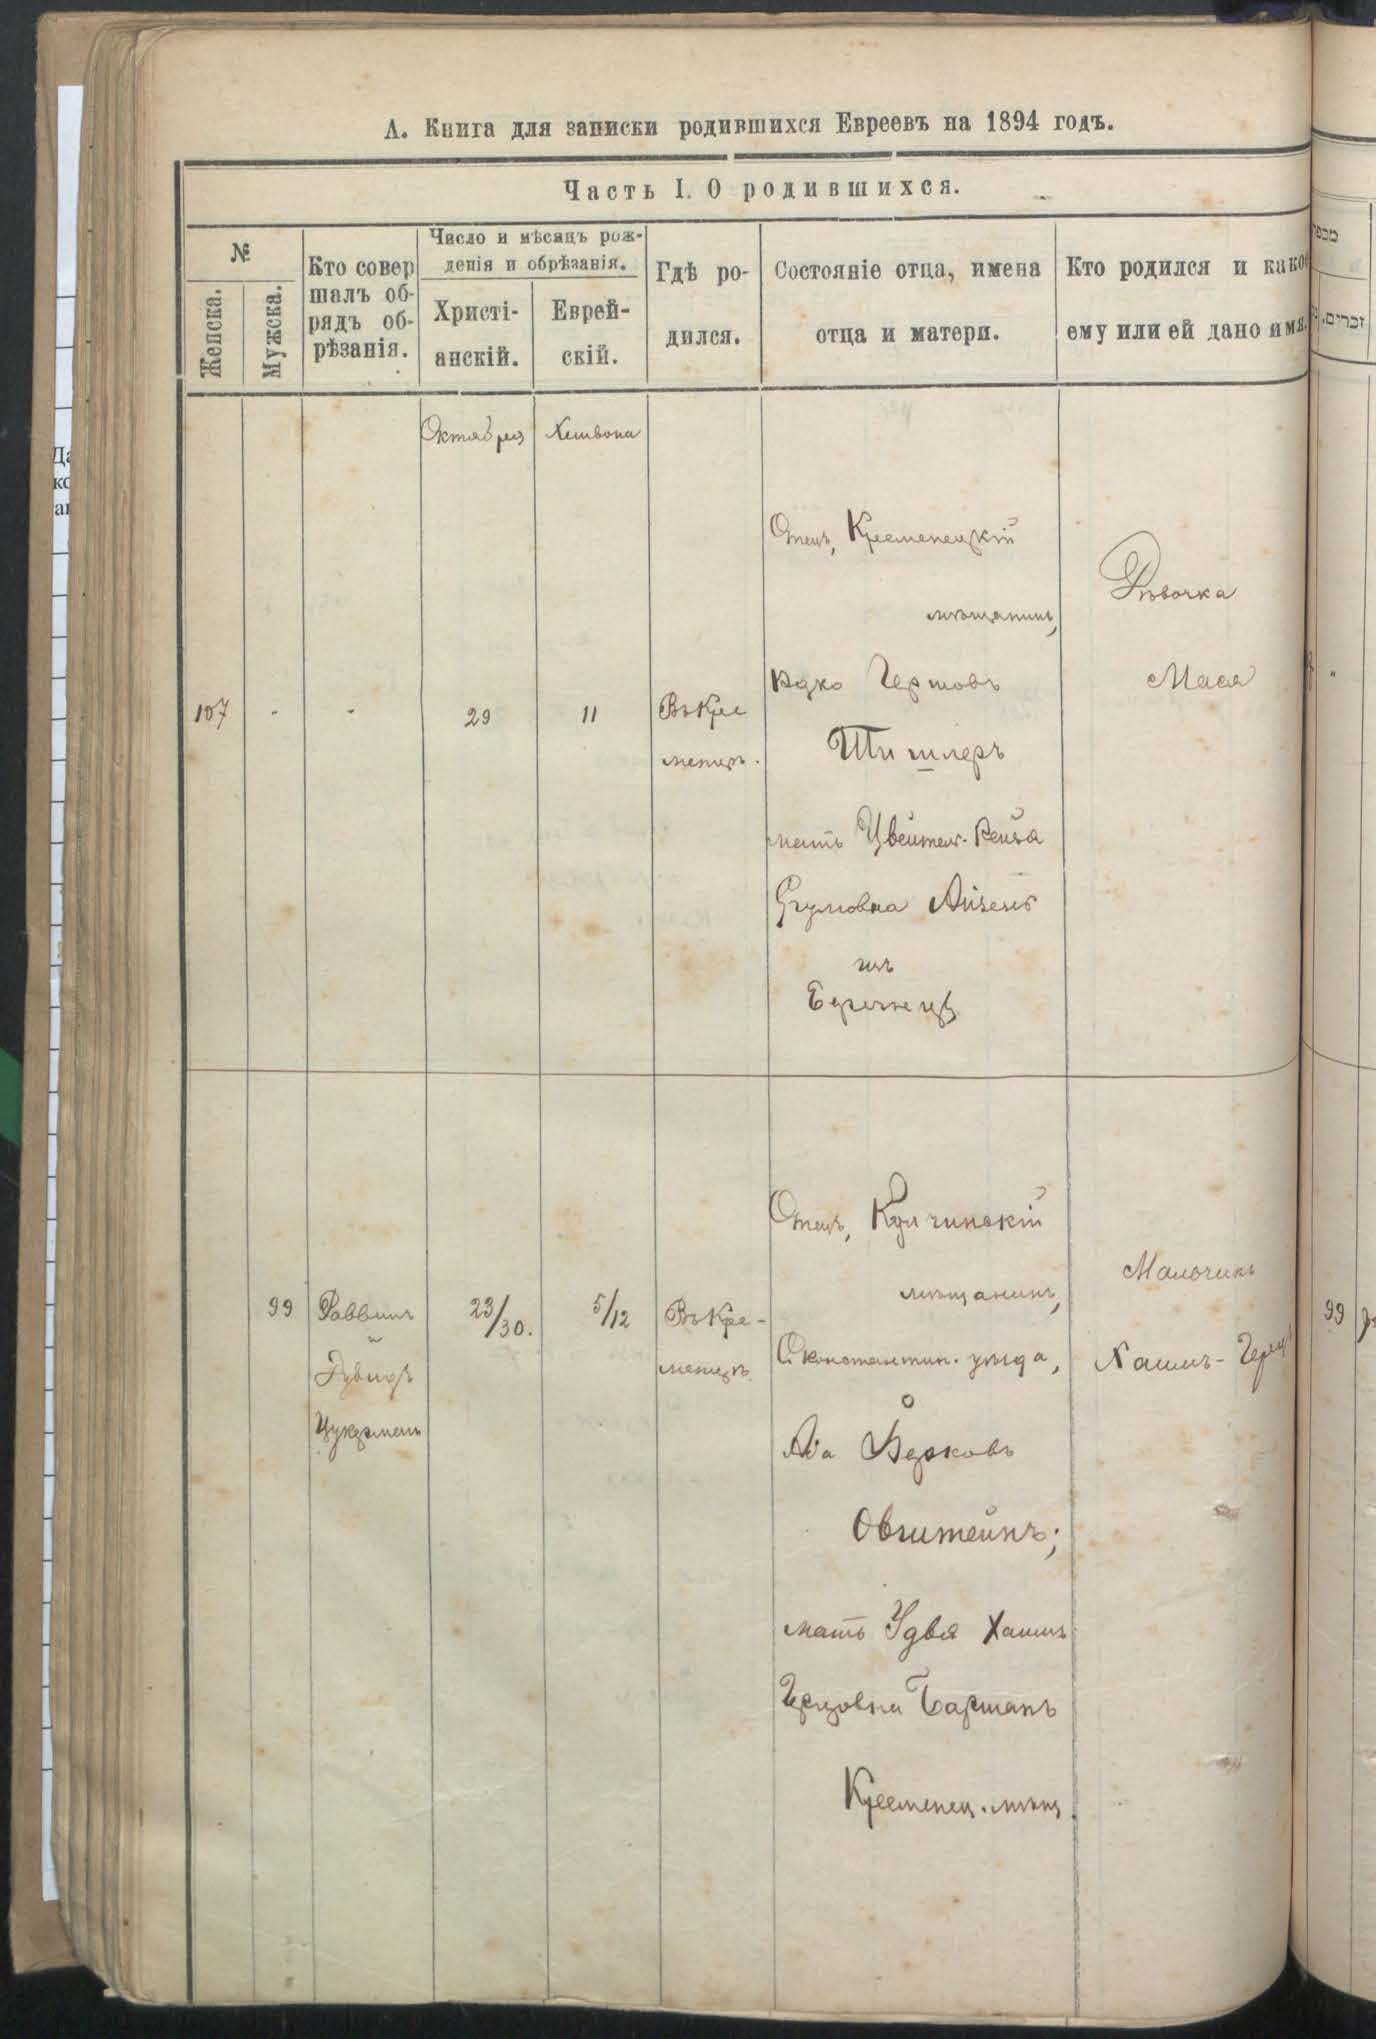 А. Книга для записки родившихся Евреевъ на 1894 годъ.
Часть I. О родившихся.
№
Женска.
Мужска.
Кто совер
шалъ об-
рядъ об-
рѣзанія.
Число и мѣсяцъ рож-
денія и обрѣзанія.
Христі-
анскій.
Еврей-
скій.
Гдѣ ро-
дился.
Состояніе отца, имена
отца и матери.
Кто родился и какое
ему или ей дано имя.
Октября
Хешвона
107
-
-
29
11
Въ Кре
менцѣ.
Отецъ, Кременецкій
мѣщанинъ,
Гершовъ
Тишлеръ
мать Цвейтел-Рейза
Айзенъ
изъ
Дѣвочка
Мася
99
Раввинъ
и
Цукерманъ
23/30.
5/12
Въ Кре-
менцѣ.
Отецъ, Кульчинскій
мѣщанинъ,
Сконстантин. уѣзда,
Берковъ
Овштейнъ;
мать Удвя Хаимъ
Герцовна Барманъ
Кременец. мѣщ.
Мальчикъ
Хаимъ-Герцъ
99
מספר
זכרים.